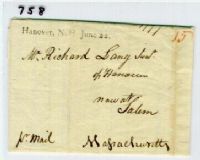 758
Hanover, N.H June 22.
15
Mr. Richard Lang
of Hanover
now at
Salem
pr mail
Massachusetts